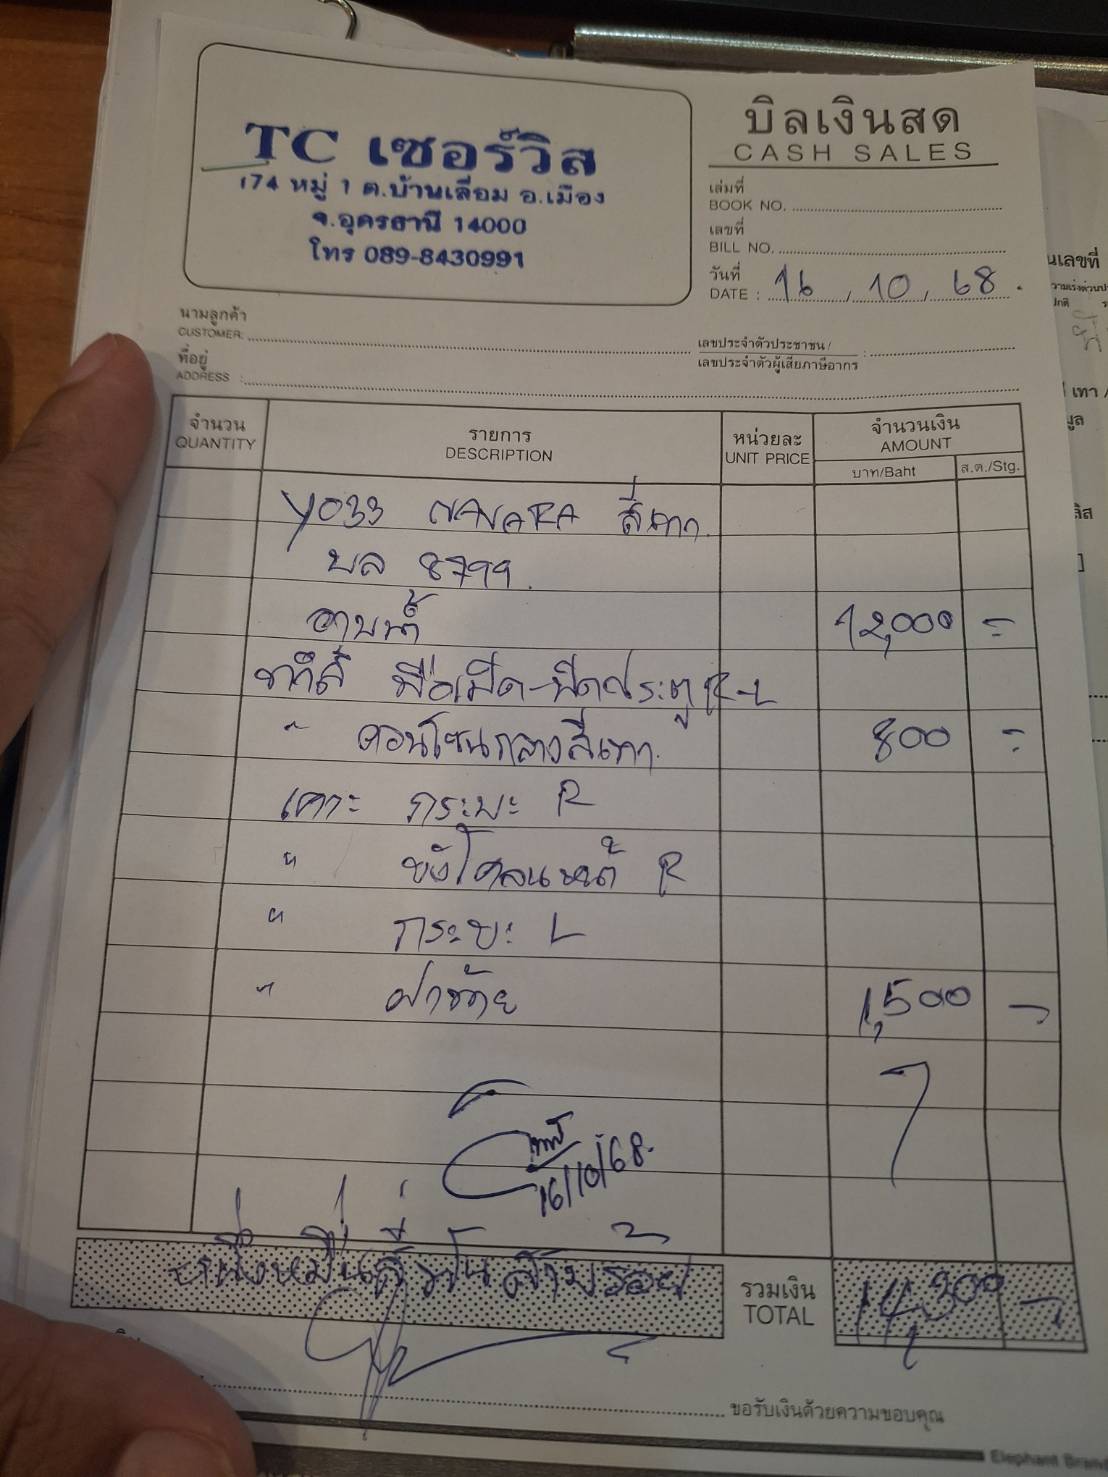 TC เซอร์วิส
174 หมู่ 1 ต.บ้านเลื่อม อ.เมือง
จ.อุดรธานี 14000
โทร 089-8430991
บิลเงินสด
CASH SALES
เล่มที่
BOOK NO.
เลขที่
BILL NO.
วันที่
DATE : 16, 10, 68.
นามลูกค้า
CUSTOMER:
ที่อยู่
ADDRESS :
เลขประจำตัวประชาชน /
เลขประจำตัวผู้เสียภาษีอากร :
จำนวน รายการ หน่วยละ จำนวนเงิน
QUANTITY DESCRIPTION UNIT PRICE AMOUNT
บาท/Baht ส.ต./Stg.
Y033 NAVARA สีเทา
บล 8799.
อาบน้ำ 12,000 -
ทำสี มือเปิด-ปิดประตู R-L
" คอนโซนกลางสีเทา. 800 -
เคาะ กระบะ R
" บังโคลนหน้า R
" กระบะ L
" ฝาท้าย 1,500 -
16/10/68.
หนึ่งหมื่นสี่พันสามร้อย
รวมเงิน
TOTAL 14,300 -
ขอรับเงินด้วยความขอบคุณ
Elephant Brand
นเลขที่
เทา /